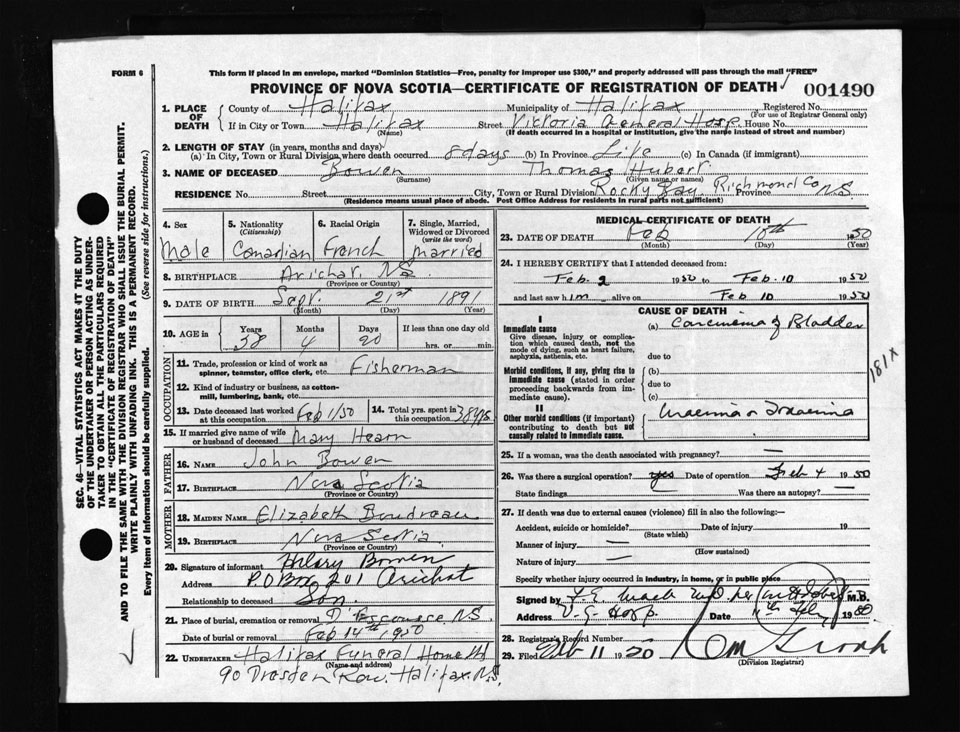 FORM 6
This form if placed in an envelope, marked "Dominion Statistics—Free, penalty for improper use $300," and properly addressed will pass through the mail "FREE"
PROVINCE OF NOVA SCOTIA—CERTIFICATE OF REGISTRATION OF DEATH
001490
1. PLACE OF DEATH
County of Halifax Municipality of Halifax Registered No.
(For use of Registrar General only)
If in City or Town Halifax Street Victoria General Hosp. House No.
(Name) (If death occurred in a hospital or institution, give the name instead of street and number)
2. LENGTH OF STAY (in years, months and days)
(a) In City, Town or Rural Division where death occurred 8 days (b) In Province Life (c) In Canada (if immigrant)
3. NAME OF DECEASED Bowen Thomas Hubert
(Surname) (Given name or names)
RESIDENCE No. Street City, Town or Rural Division Rocky Bay Richmond Co Province N.S.
(Residence means usual place of abode. Post Office Address for residents in rural parts not sufficient)
4. Sex Male
5. Nationality (Citizenship) Canadian
6. Racial Origin French
7. Single, Married, Widowed or Divorced (write the word) Married
8. BIRTHPLACE Arichat. N.S.
(Province or Country)
9. DATE OF BIRTH Sept. 21st 1891
(Month) (Day) (Year)
10. AGE in Years 58 Months 4 Days 20 If less than one day old
hrs. or min.
OCCUPATION
11. Trade, profession or kind of work as spinner, teamster, office clerk, etc. Fisherman
12. Kind of industry or business, as cotton-mill, lumbering, bank, etc.
13. Date deceased last worked at this occupation Feb 1/50
14. Total yrs. spent in this occupation 38 yrs
15. If married give name of wife or husband of deceased Mary Hearn
FATHER
16. NAME John Bowen
17. BIRTHPLACE Nova Scotia
(Province or Country)
MOTHER
18. MAIDEN NAME Elizabeth Boudreau
19. BIRTHPLACE Nova Scotia
(Province or Country)
20. Signature of informant Hilary Bowen
Address P.O Box 201 Arichat
Relationship to deceased Son.
21. Place of burial, cremation or removal D'Escousse N.S.
Date of burial or removal Feb 14th 1950
22. UNDERTAKER Halifax Funeral Home Ltd
(Name and address)
90 Dresden Row. Halifax. N.S.
MEDICAL CERTIFICATE OF DEATH
23. DATE OF DEATH Feb 10th 1950
(Month) (Day) (Year)
24. I HEREBY CERTIFY that I attended deceased from:
Feb. 2 1950 to Feb. 10 1950
and last saw him alive on Feb 10 1950
CAUSE OF DEATH
I
Immediate cause
Give disease, injury or complication which caused death, not the mode of dying, such as heart failure, asphyxia, asthenia, etc.
(a) Carcinoma of Bladder
due to
Morbid conditions, if any, giving rise to immediate cause (stated in order proceeding backwards from immediate cause).
(b)
due to
(c)
181X
II
Other morbid conditions (if important) contributing to death but not causally related to immediate cause.
25. If a woman, was the death associated with pregnancy? —
26. Was there a surgical operation? yes Date of operation Feb 4 1950
State findings Was there an autopsy? —
27. If death was due to external causes (violence) fill in also the following:—
Accident, suicide or homicide? Date of injury 19
(State which)
Manner of injury —
(How sustained)
Nature of injury —
Specify whether injury occurred in industry, in home, or in public place
Signed by M.B.
Address V. G. Hosp. Date 11th Feb 1950
28. Registrar's Record Number
29. Filed Feb 11 1950
(Division Registrar)
SEC. 46—VITAL STATISTICS ACT MAKES IT THE DUTY OF THE UNDERTAKER OR PERSON ACTING AS UNDERTAKER TO OBTAIN ALL THE PARTICULARS REQUIRED IN THE "CERTIFICATE OF REGISTRATION OF DEATH" AND TO FILE THE SAME WITH THE DIVISION REGISTRAR WHO SHALL ISSUE THE BURIAL PERMIT.
WRITE PLAINLY WITH UNFADING INK. THIS IS A PERMANENT RECORD.
Every item of information should be carefully supplied. (See reverse side for instructions.)